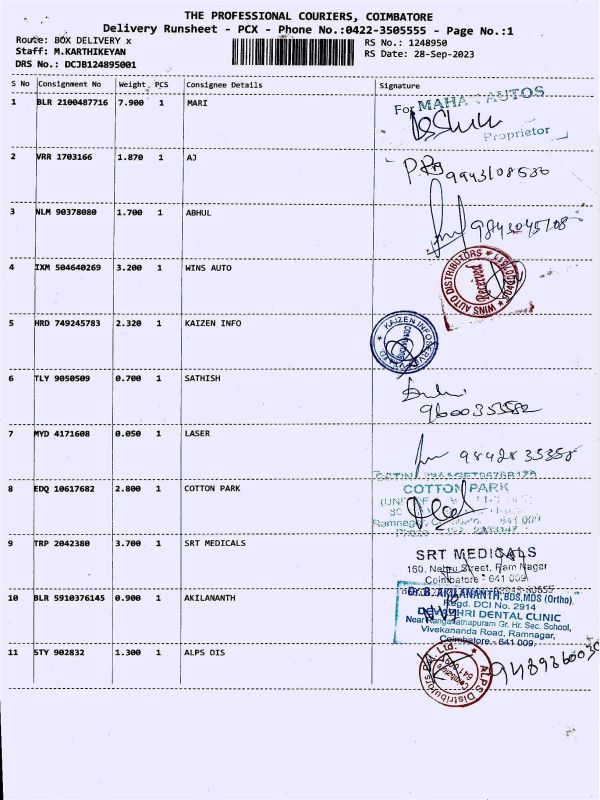 THE PROFESSIONAL COURIERS, COIMBATORE
Delivery Runsheet - PCX - Phone No.:0422-3505555 - Page No.:1
Route: BOX DELIVERY x
RS No.: 1248950
Staff: M.KARTHIKEYAN
RS Date: 28-Sep-2023
DRS No.: DCJB124895001
S No Consignment No Weight PCS Consignee Details Signature
1 BLR 2100487716 7.900 1 MARI
For MAHA AUTOS
Proprietor
2 VRR 1703166 1.870 1 AJ
9943108530
3 NLM 90378080 1.700 1 ABHUL
9843045108
4 IXM 504640269 3.200 1 WINS AUTO
WINS AUTO DISTRIBUTORS
Received
5 HRD 749245783 2.320 1 KAIZEN INFO
KAIZEN INFOSERVE
6 TLY 9050509 0.700 1 SATHISH
9600353582
7 MYD 4171608 0.050 1 LASER
9842835358
8 EDQ 10617682 2.800 1 COTTON PARK
COTTON PARK
Ramnagar, 641 009
9 TRP 2042380 3.700 1 SRT MEDICALS
SRT MEDICALS
160, Nehru Street, Ram Nagar
Coimbatore - 641 009
10 BLR 5910376145 0.900 1 AKILANANTH
Dr. B. AKILANANTH, BDS,MDS (Ortho)
Regd. DCI No. 2914
DENTAL CLINIC
Near Ranganathapuram Gr. Hr. Sec. School,
Vivekananda Road, Ramnagar,
Coimbatore - 641 009.
11 STY 902832 1.300 1 ALPS DIS
ALPS Distributors Pvt. Ltd.